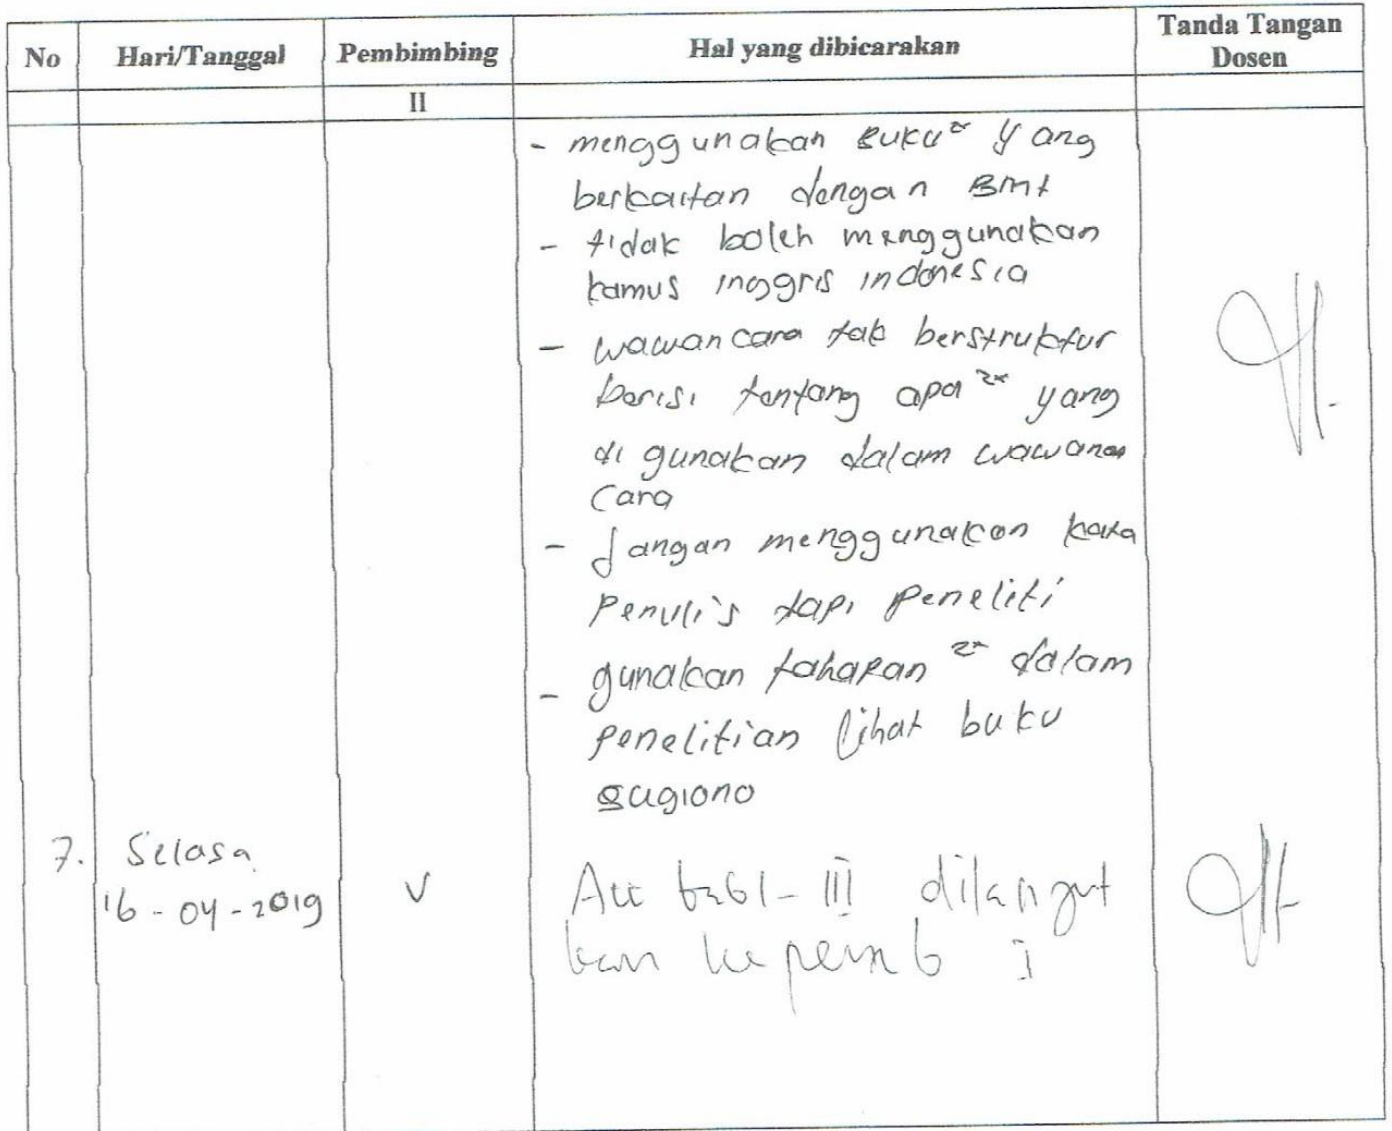 No Hari/Tanggal Pembimbing Hal yang dibicarakan Tanda Tangan Dosen
II
- menggunakan Buku² yang
berkaitan dengan BMT
- tidak boleh menggunakan
kamus inggris indonesia
- wawancara tak berstruktur
berisi tentang apa² yang
di gunakan dalam wawanca
cara
- Jangan menggunakan kata
Penulis tapi Peneliti
- gunakan tahapan² dalam
penelitian lihat buku
sugiono
7. Selasa
16-04-2019 V Acc bab I - III dilanjut
kan ke pemb I